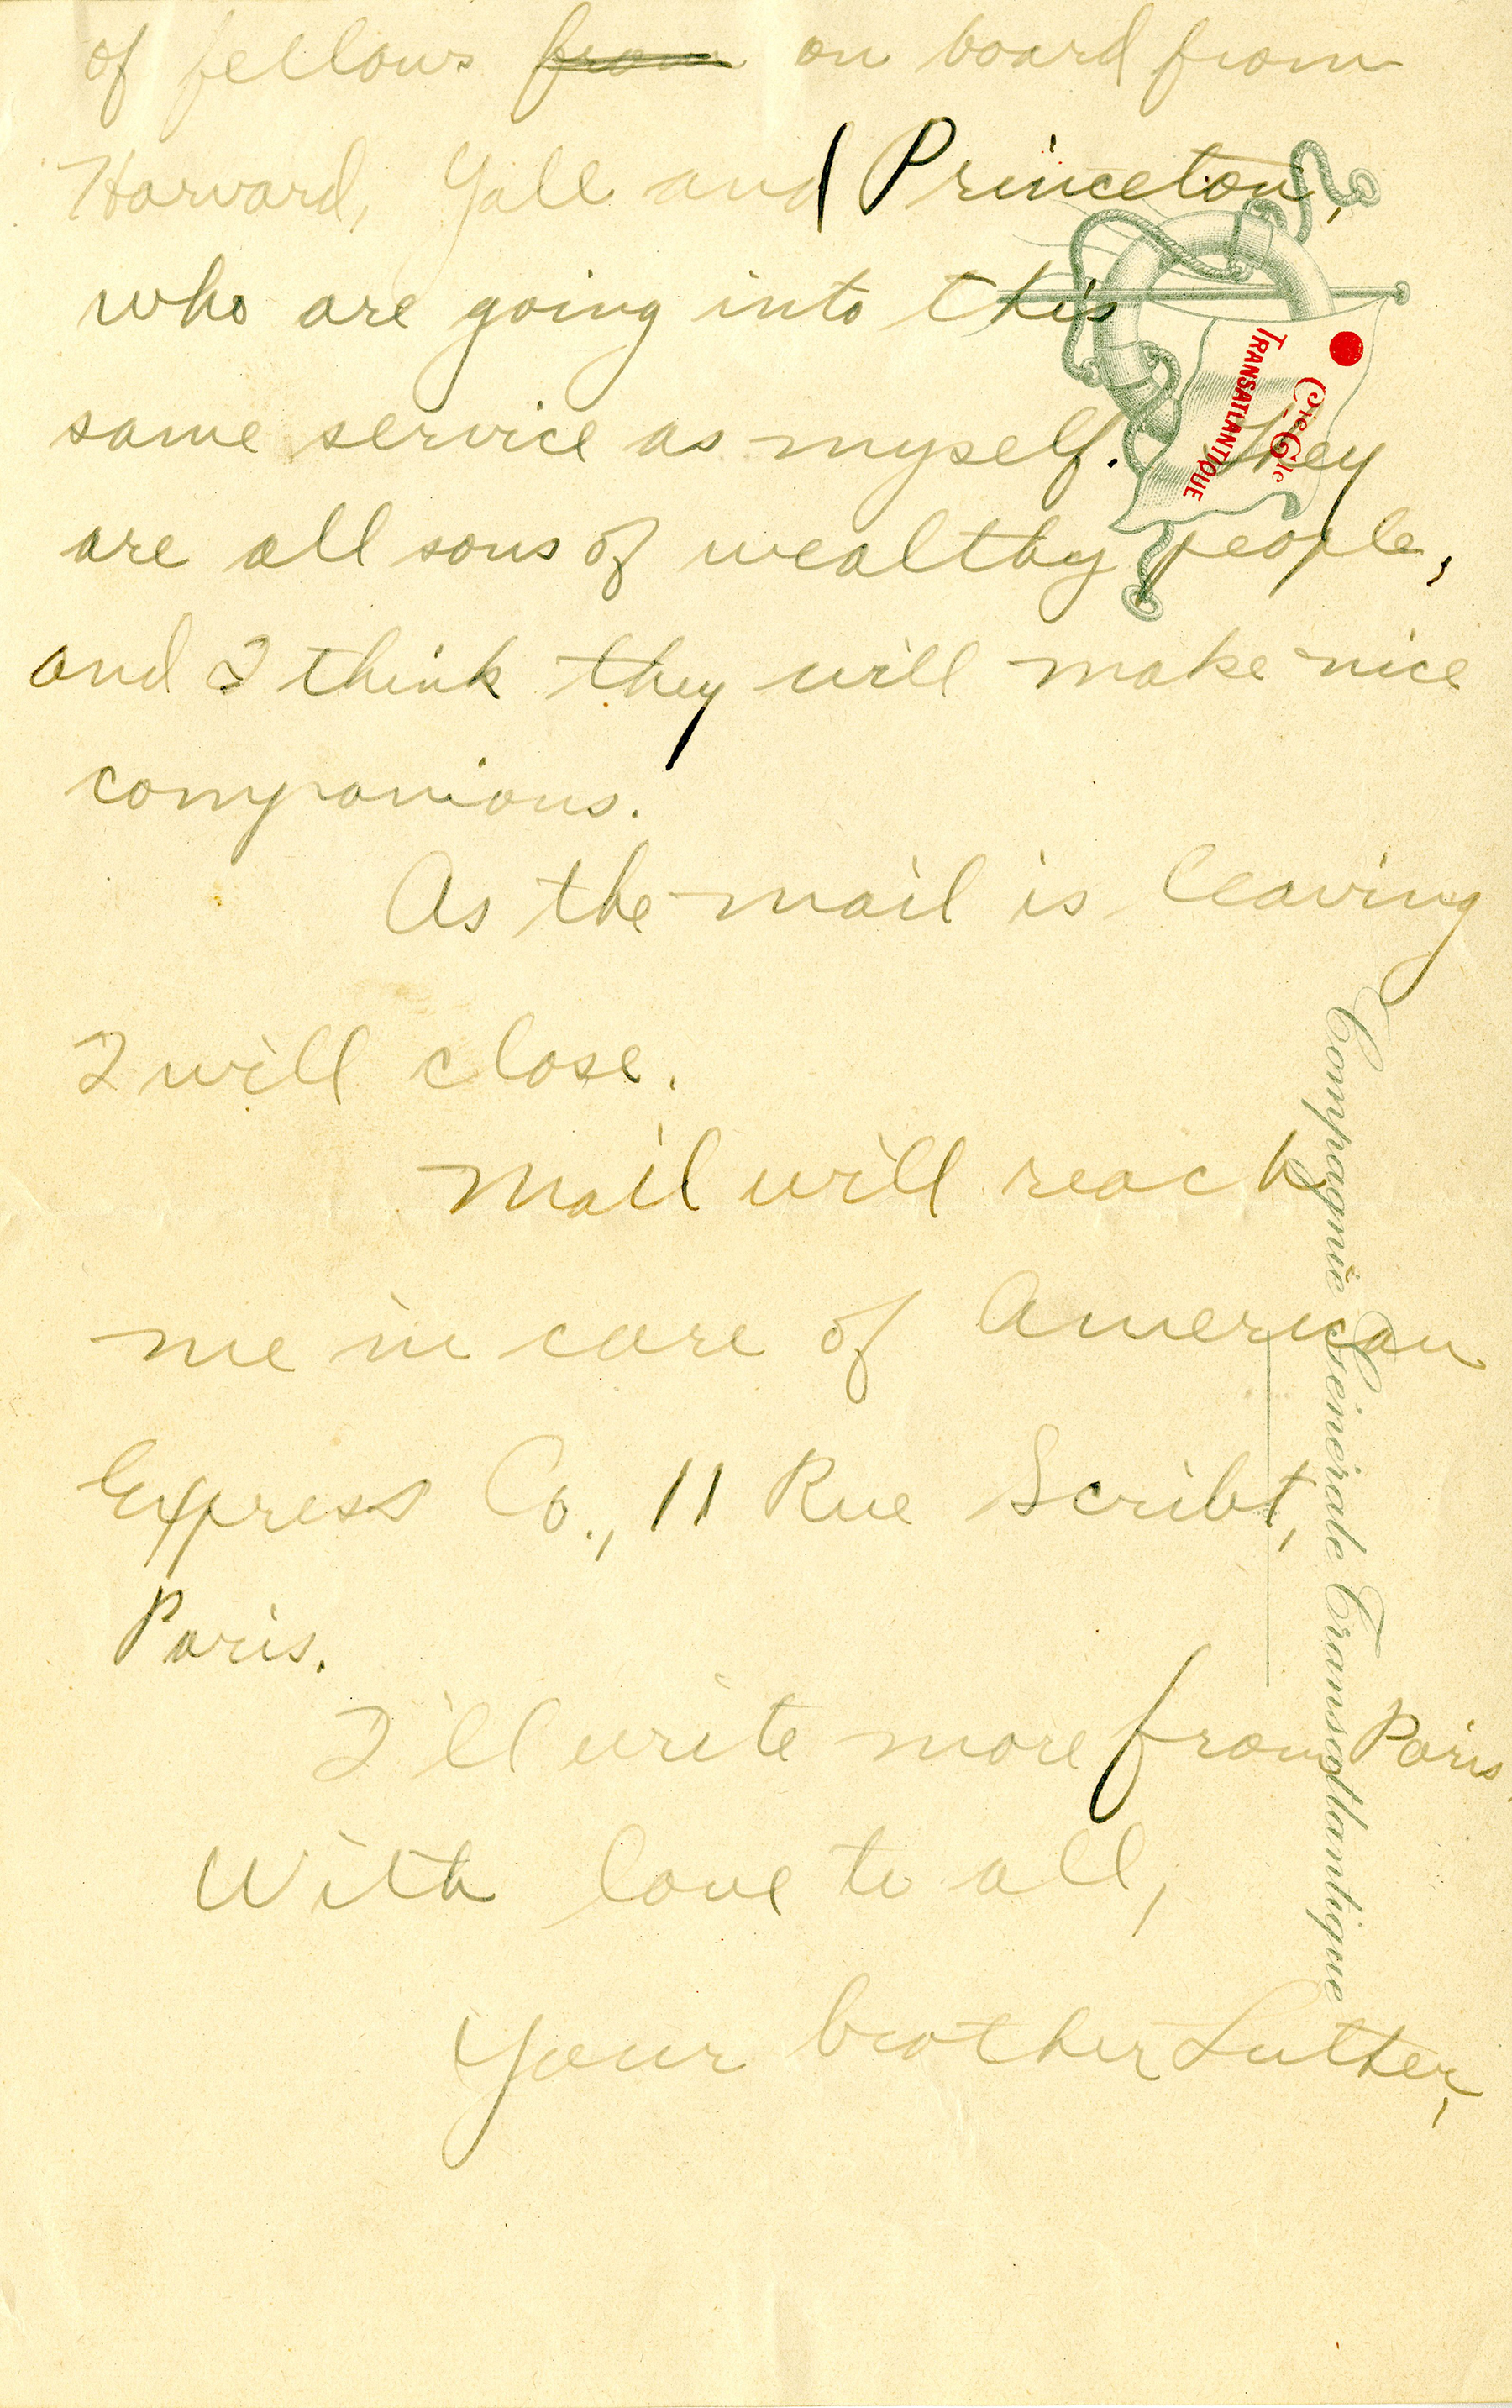 of fellows from on board from
Harvard, Yale and Princeton,
who are going into this
same service as myself. They
are all sons of wealthy people,
and I think they will make nice
companions.
As the mail is leaving
I will close.
Mail will reach
me in care of American
Express Co., 11 Rue Scribt,
Paris.
I'll write more from Paris.
With love to all,
Your brother Luther,
Cie Gle
TRANSATLANTIQUE
Compagnie Générale Transatlantique